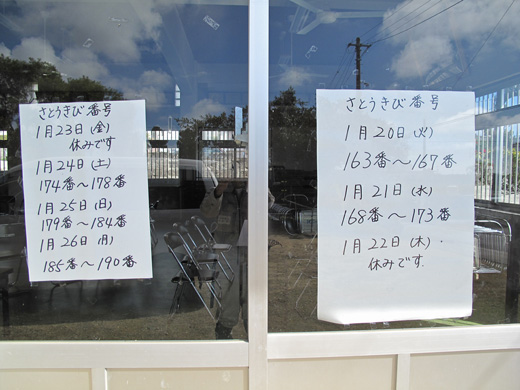 さとうきび番号
1月23日(金)
休みです
1月24日(土)
174番～178番
1月25日(日)
179番～184番
1月26日(月)
185番～190番
さとうきび番号
1月20日(火)
163番～167番
1月21日(水)
168番～173番
1月22日(木)
休みです.